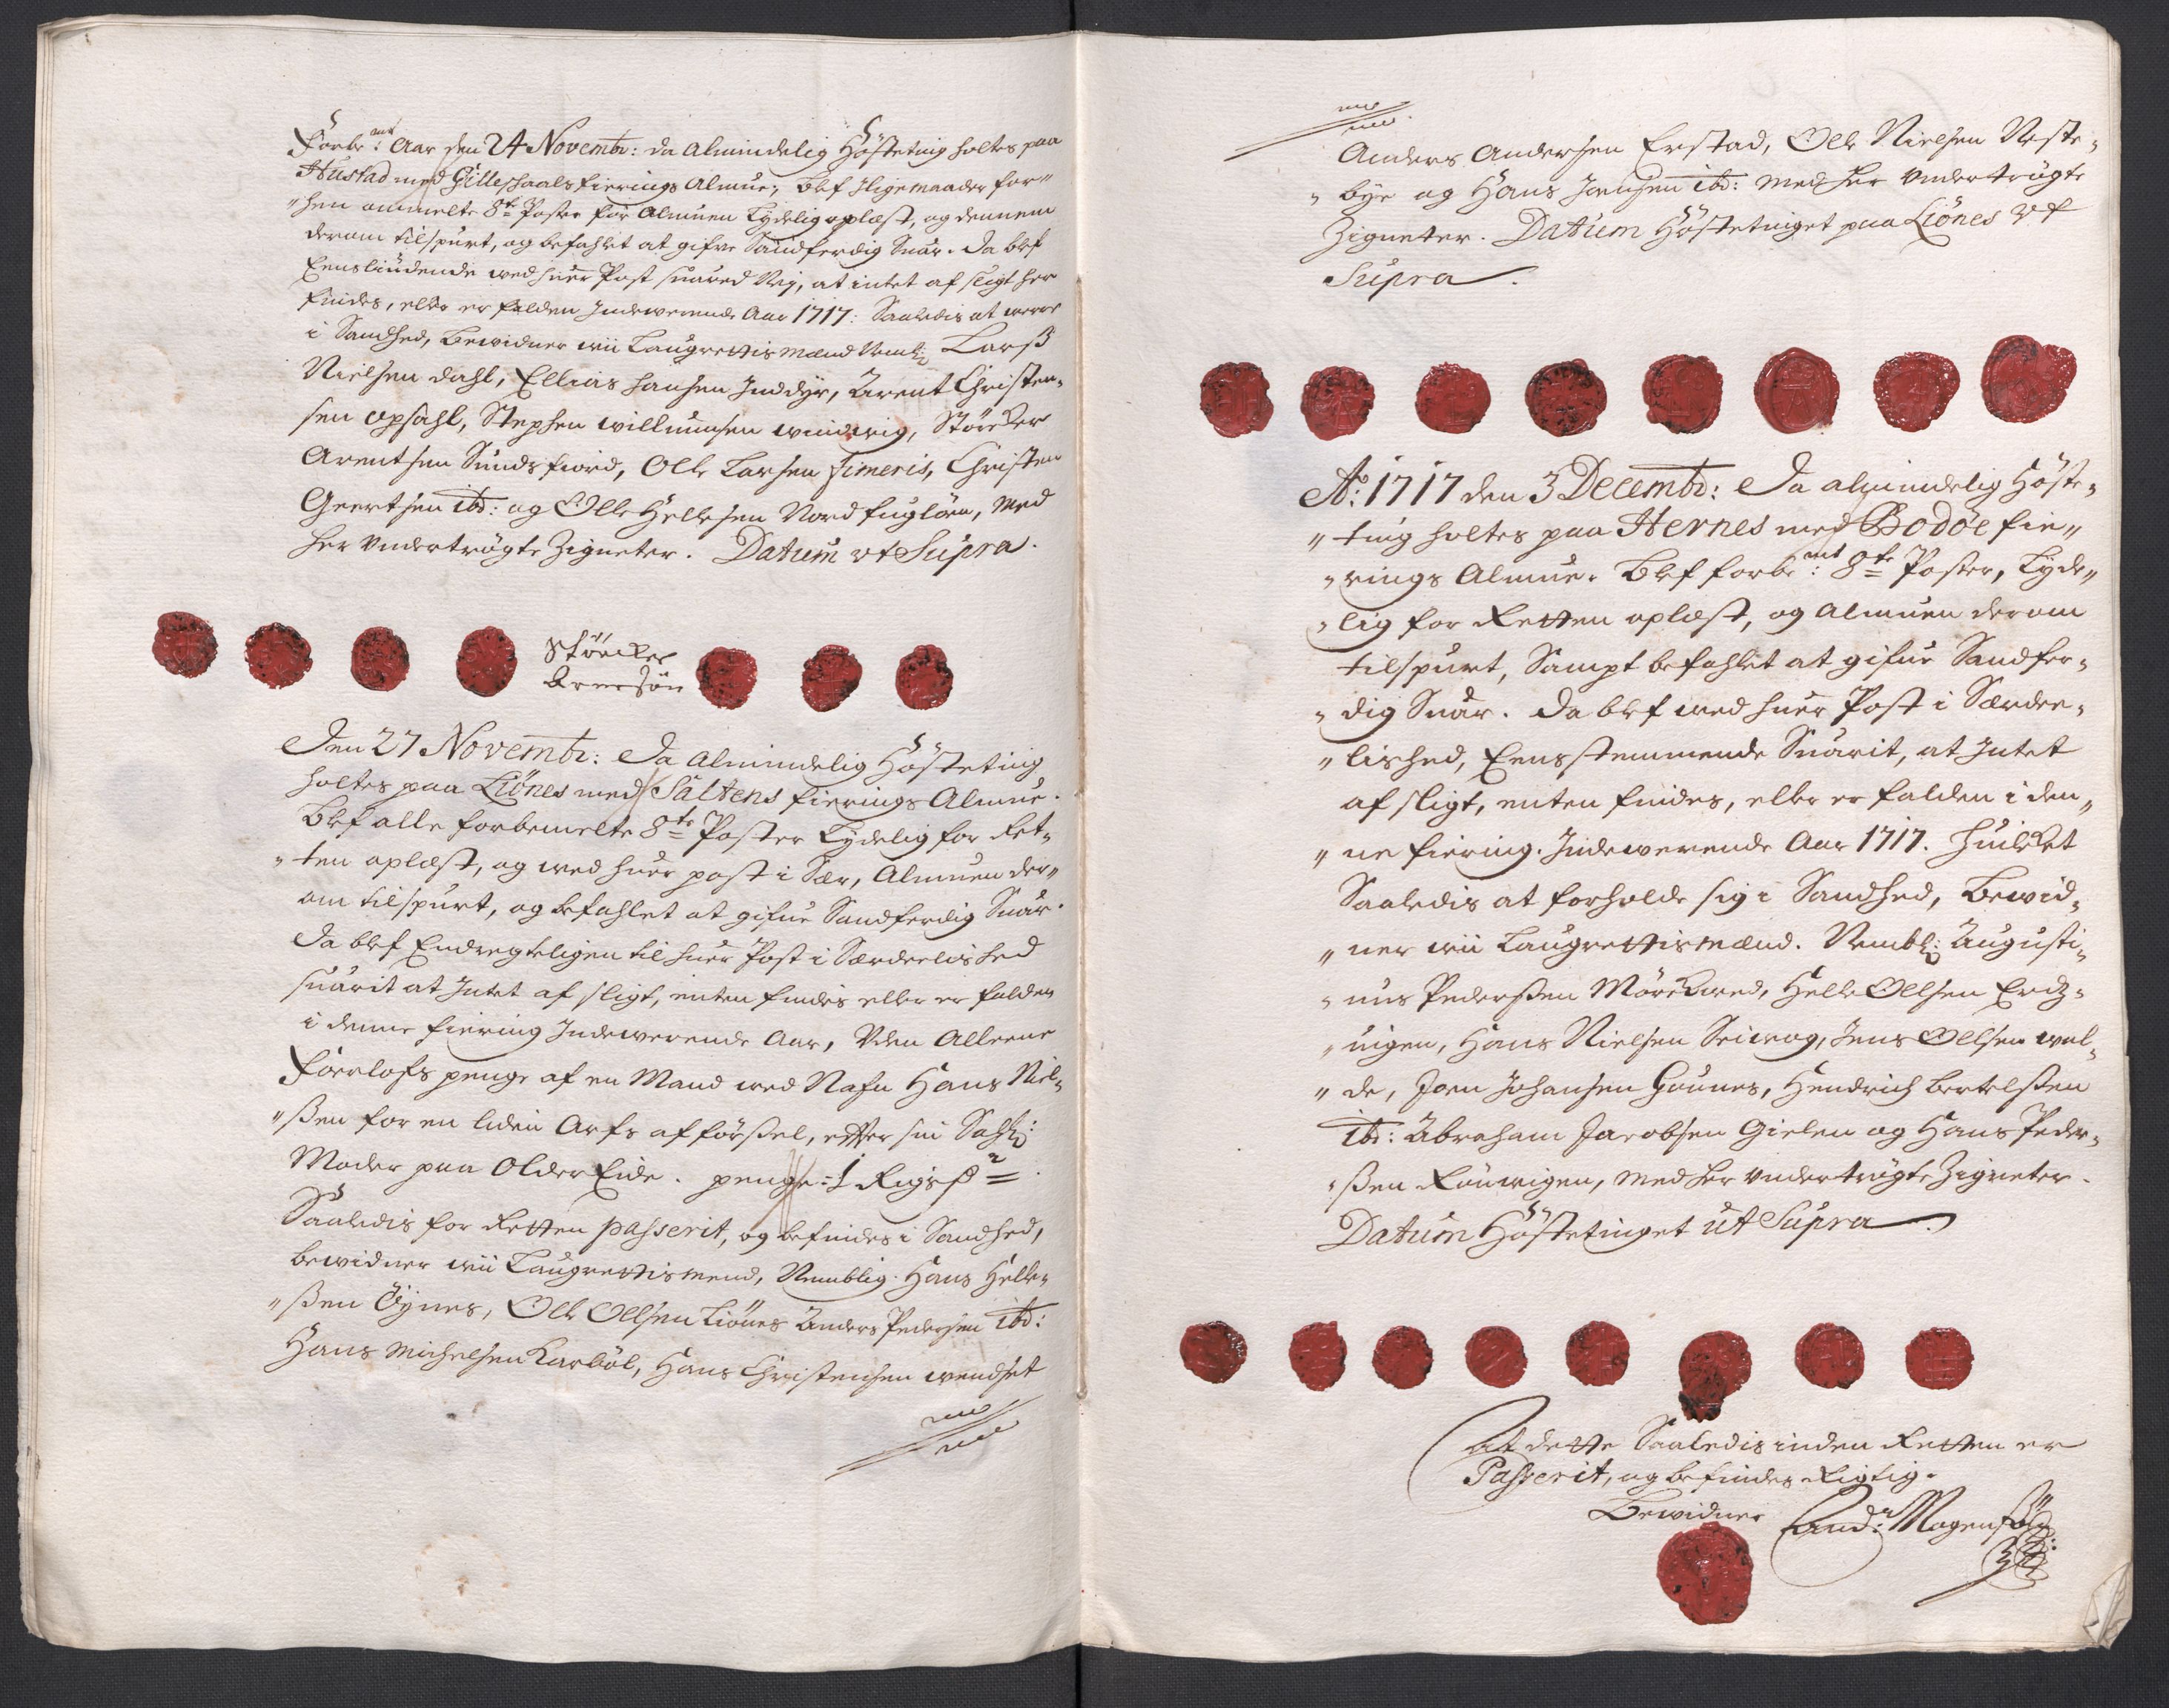 Forbe:mt Aar den 24 Novembr: da Almindelig Høsteting holtes paa
Hustad med Gilleschaals fierings Almue, blef sligemaader for-
"hen ommelte 8te Poster for Almuen Tydelig oplæst, og dennem
derom tilspurt, og befahlet at gifve Sandferdig Snar. da blef
Eenslÿdende ved huer Post suared Nej, at intet af sligt her
findes, eller er falden Indewerende Aar 1717: Saaledis at were
i Sandhed, bewidner wii Laugrettis mænd Nembl: Larß
Nielsen dahl, Ellias hansen Inddÿr, Arent Christen-
sen opsahl, Stephen willumsen windvig, Størcker
Arentsen Sundsfiord, Olle Larsen fimeris, Christen
Geertsen ibd: og Olle Hellesen Nordfugløen, med
her vndertrøgte Zigneter. Datum vt Supra.
Størcker
Arensøn
Den 27 Novembr: Da Almindelig Høsteting
holtes paa Liønes med Saltens fierings Almue.
Blef alle forbemelte 8te Poster Tydelig for Ret-
"ten oplæst, og wed huer post i Sær, Almuen der"
om tilspurt, og befahlet at gifue Sandferdig Snar.
Da blef Endregteligen til huer Post i Særdeelished
suarit at Intet af sligt, enten findes eller er falden
i denne fiering Indewerende Aar, Vden Alleene
Førlofs penge af en Mand wed Nafn Hans Niel-
"ßen for en liden Arfs afførßel, efter sin Sahl:
Moder paa Older Eide. penge: 1 Rigs ß 2
Saaledis for Retten passerit, og befindes i Sandhed,
bewidner wii Laugrettismend, Nemblig. Hans Helle-
"ßen Øÿnes, Olle Ollsen Liønes Anders Pedersen ibd:
Hans Michelsen Karbøl, Hans Christensen wendset
Anders Andersen Erstad, Olle Nielsen Neste-
"bye og Hans Jensen ibd: med her vndertrøgte
Zigneter. Datum Høstetinget paa Liønes vt
Supra.
Ao: 1717 den 3 Decembr: Da almindelig Høste-
"ting holtes paa Hernes med Bodøe fie"
"rings Almue. Blef forbe:mt 8te Poster, Tyde"
"lig for Retten oplæst, og Almuen derom
tilspurt, Sampt befahlet at gifue Sandfer-
"dig Snar. Da blef wed huer Post i Særdee-
"lished, Eensstemmende Suarit, at Intet
af sligt, enten findes, eller er falden i den"
"ne fiering. Indewerende Aar 1717. Huilket
Saaledis at forholde sig i Sandhed, Bewid-
"ner wii Laugrettismænd. Nembl: Augusti-
"nus Pederßen Mørckued, Helle Ollsen
"ningen, Hans Nielsen Seiwog, Jens Ollsen wal-
"de, Joen Johansen Gounes, Hendrich Bertelßen
ibd: Abraham Jacobsen Gielen og Hans Peder-
"ßen Rønwigen, med her vndertrøgte Zigneter.
Datum Høstetinget ut Supra
At dette Saaledis inden Retten er
Passerit, og befindes Rigtig.
Bewidner And: Mogensøn